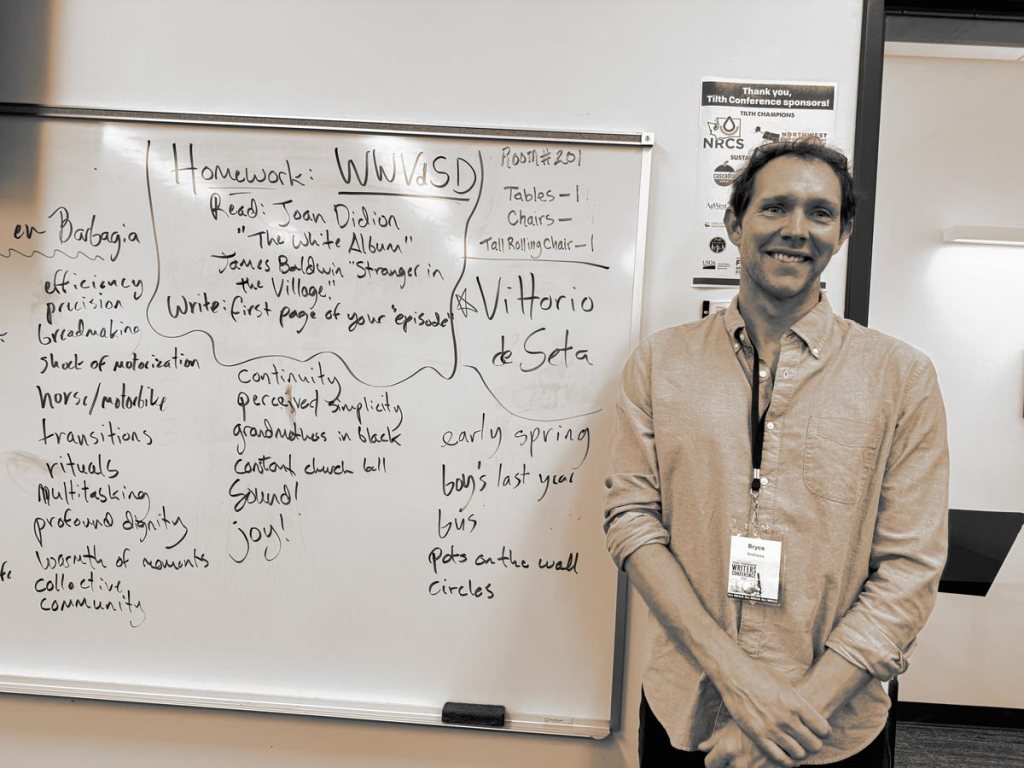 en Barbagia
efficiency
precision
breadmaking
shock of motorization
horse/motorbike
transitions
rituals
multitasking
profound dignity
warmth of moments
collective
community
Homework: WWVdSD
Read: Joan Didion
"The White Album"
James Baldwin "Stranger in
the Village."
Write: first page of your "episode"
continuity
perceived simplicity
grandmothers in black
constant church bell
Sound!
joy!
ROOM# 201
Tables - 1
Chairs -
Tall Rolling Chair - 1
Vittorio
de Seta
early spring
boy's last year
bus
pots on the wall
circles
Thank you,
Tilth Conference sponsors!
TILTH CHAMPIONS
NRCS
NORTHWEST
CASCADIA
USDA
Bryce
Andrews
WRITERS
CONFERENCE